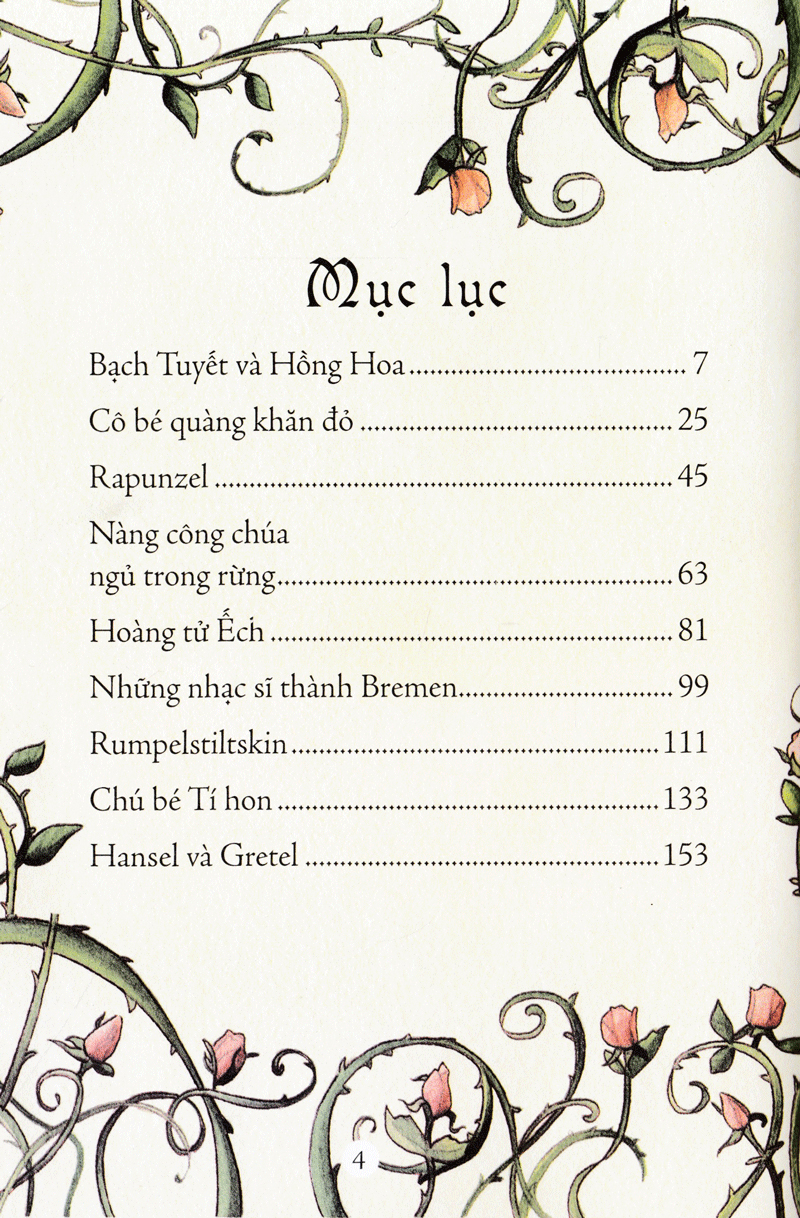 Mục lục
Bạch Tuyết và Hồng Hoa........................................ 7
Cô bé quàng khăn đỏ ............................................. 25
Rapunzel .................................................................. 45
Nàng công chúa
ngủ trong rừng......................................................... 63
Hoàng tử Ếch .......................................................... 81
Những nhạc sĩ thành Bremen............................... 99
Rumpelstiltskin..................................................... 111
Chú bé Tí hon ....................................................... 133
Hansel và Gretel ................................................... 153
4